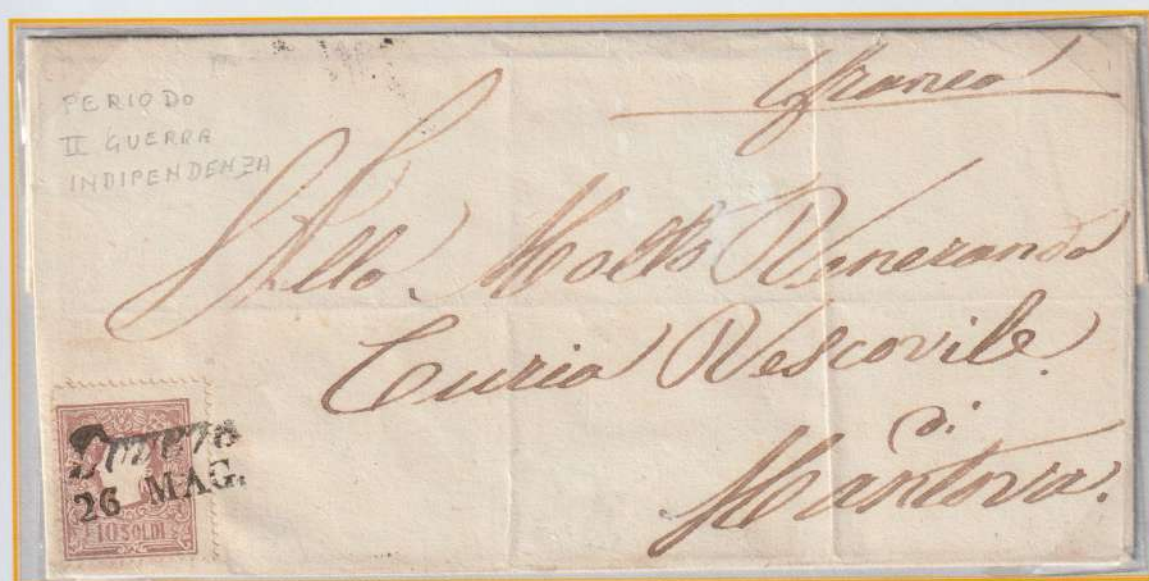 PERIODO
II GUERRA
INDIPENDENZA
franco
Alla Molto Veneranda
Curia Vescovile
di
Mantova.
26 MAG.
10 SOLDI